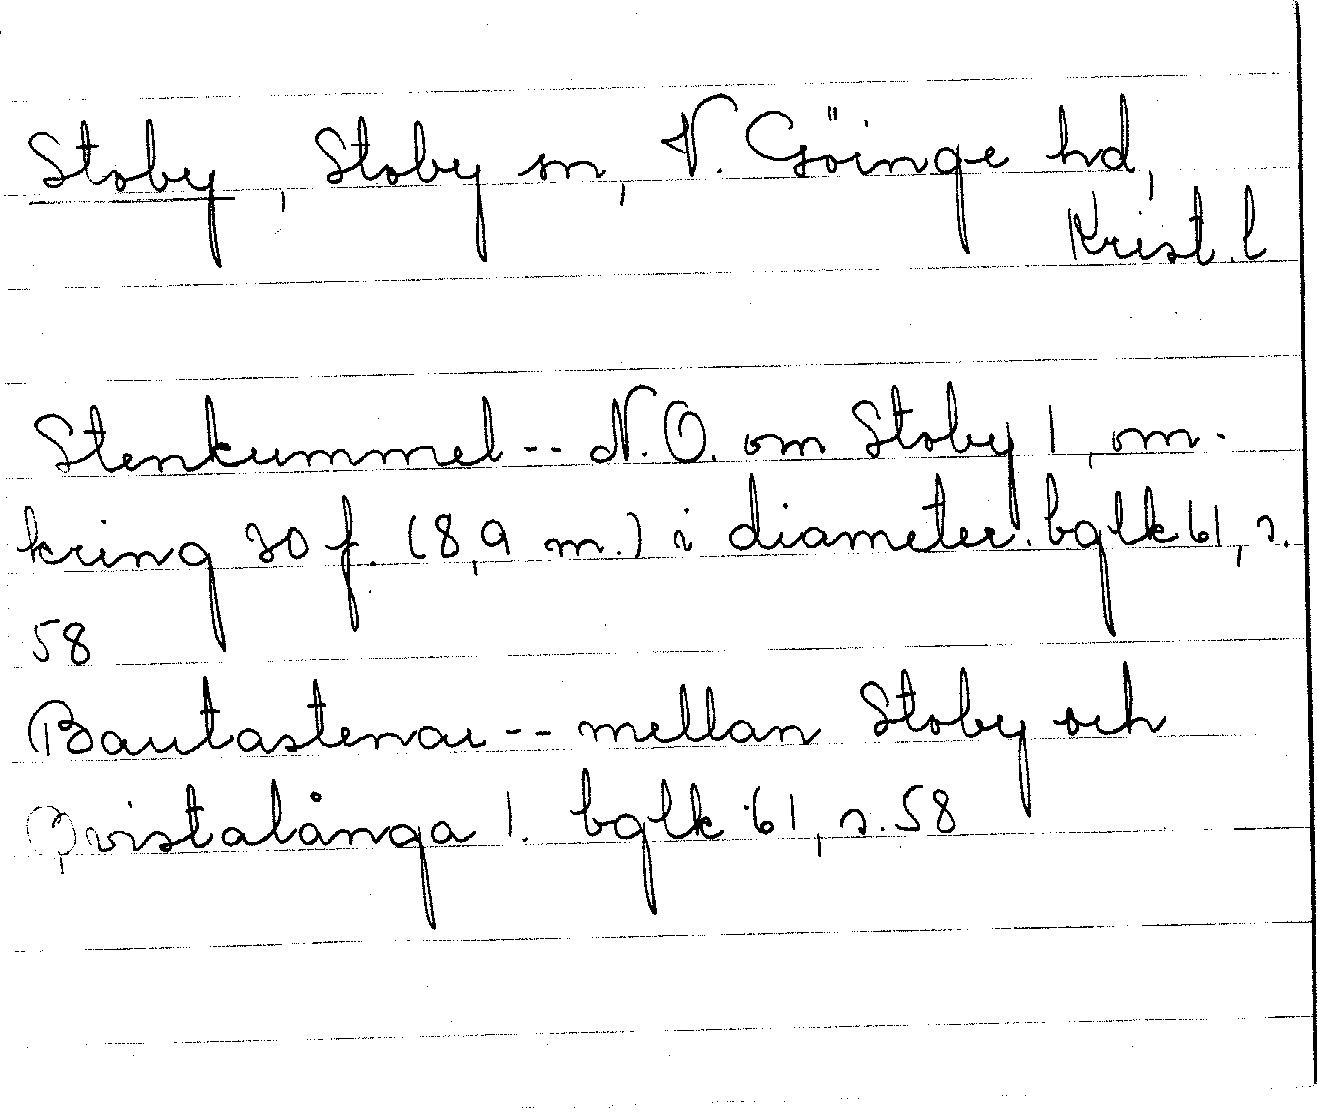 Stoby, Stoby sn, V. Göinge hd,
Krist. l
Stenkummel -- N.O. om Stoby l, om-
kring 30 f. (8,9 m.) i diameter. bglk 61, s.
58
Bautastenar -- mellan Stoby och
Qvistalånga l. bglk 61, s. 58